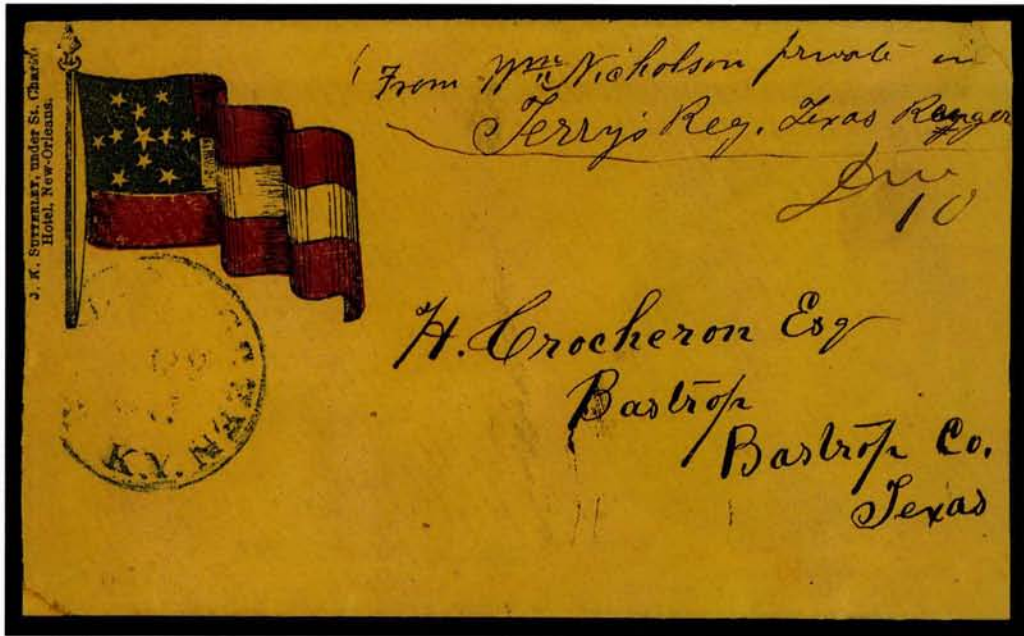 J. K. SUTTERLEY, under St. Charles
Hotel, New-Orleans.
From Wm Nicholson private in
Terry's Reg. Texas Ranger
Due
10
H. Crocheron Esq
Bastrop
Bastrop Co.
Texas
KY.